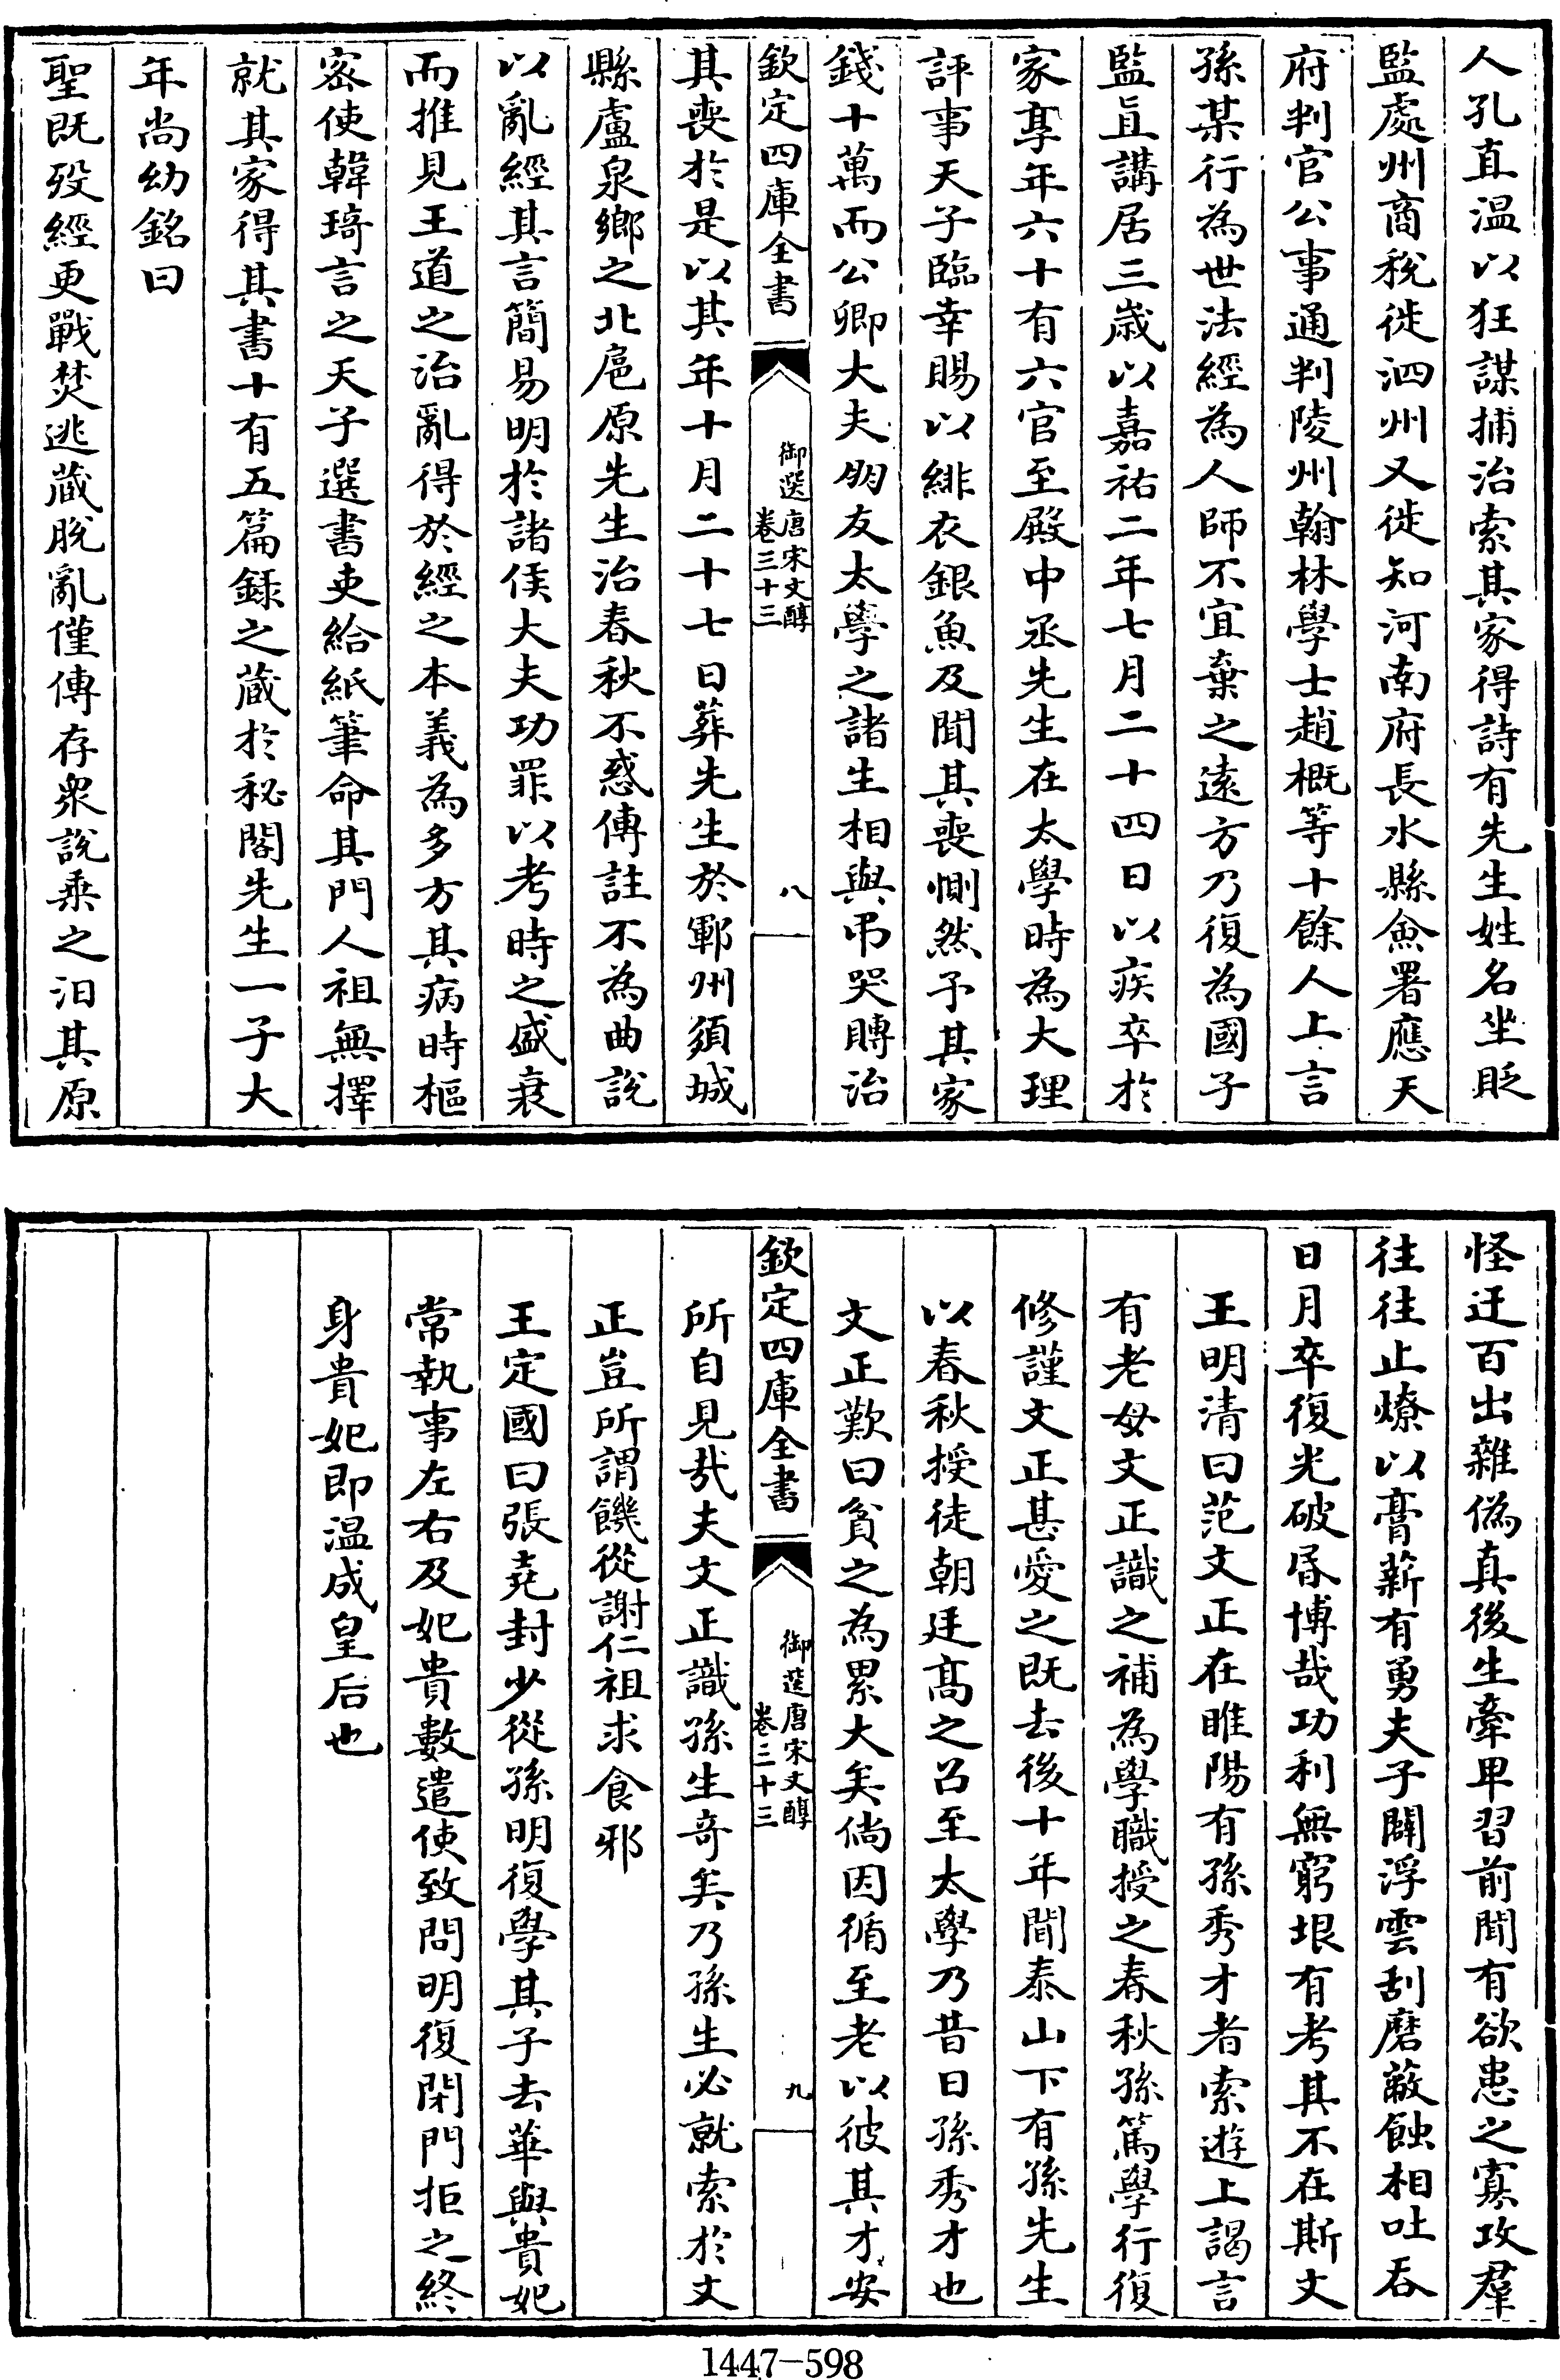 人孔直温以狂謀捕治索其家得詩有先生姓名坐貶
監處州商稅徙泗州又徙知河南府長水縣僉署應天
府判官公事通判陵州翰林學士趙概等十餘人上言
孫某行為世法經為人師不宜棄之遠方乃復為國子
監直講居三歲以嘉祐二年七月二十四日以疾卒於
家享年六十有六官至殿中丞先生在太學時為大理
評事天子臨幸賜以緋衣銀魚及聞其喪惻然予其家
錢十萬而公卿大夫朋友太學之諸生相與弔哭賻治
欽定四庫全書
御選唐宋文醇
卷三十三
八
其喪於是以其年十月二十七日葬先生於鄆州須城
縣盧泉鄉之北扈原先生治春秋不惑傳註不為曲說
以亂經其言簡易明於諸侯大夫功罪以考時之盛衰
而推見王道之治亂得於經之本義為多方其病時樞
密使韓琦言之天子選書吏給紙筆命其門人祖無擇
就其家得其書十有五篇錄之藏於秘閣先生一子大
年尚幼銘曰
聖既歿經更戰焚逃藏脫亂僅傳存衆說乘之汨其原
怪迂百出雜偽真後生牽卑習前聞有欲患之寡攻羣
往往止燎以膏薪有勇夫子闢浮雲刮磨蔽蝕相吐吞
日月卒復光破昏博哉功利無窮垠有考其不在斯文
王明清曰范文正在睢陽有孫秀才者索遊上謁言
有老母文正識之補為學職授之春秋孫篤學行復
修謹文正甚愛之既去後十年聞泰山下有孫先生
以春秋授徒朝廷高之召至太學乃昔日孫秀才也
文正歎曰貧之為累大矣倘因循至老以彼其才安
欽定四庫全書
御選唐宋文醇
卷三十三
九
所自見哉夫文正識孫生奇矣乃孫生必就索於文
正豈所謂饑從謝仁祖求食邪
王定國曰張堯封少從孫明復學其子去華與貴妃
常執事左右及妃貴數遣使致問明復閉門拒之終
身貴妃即温成皇后也
1447-598